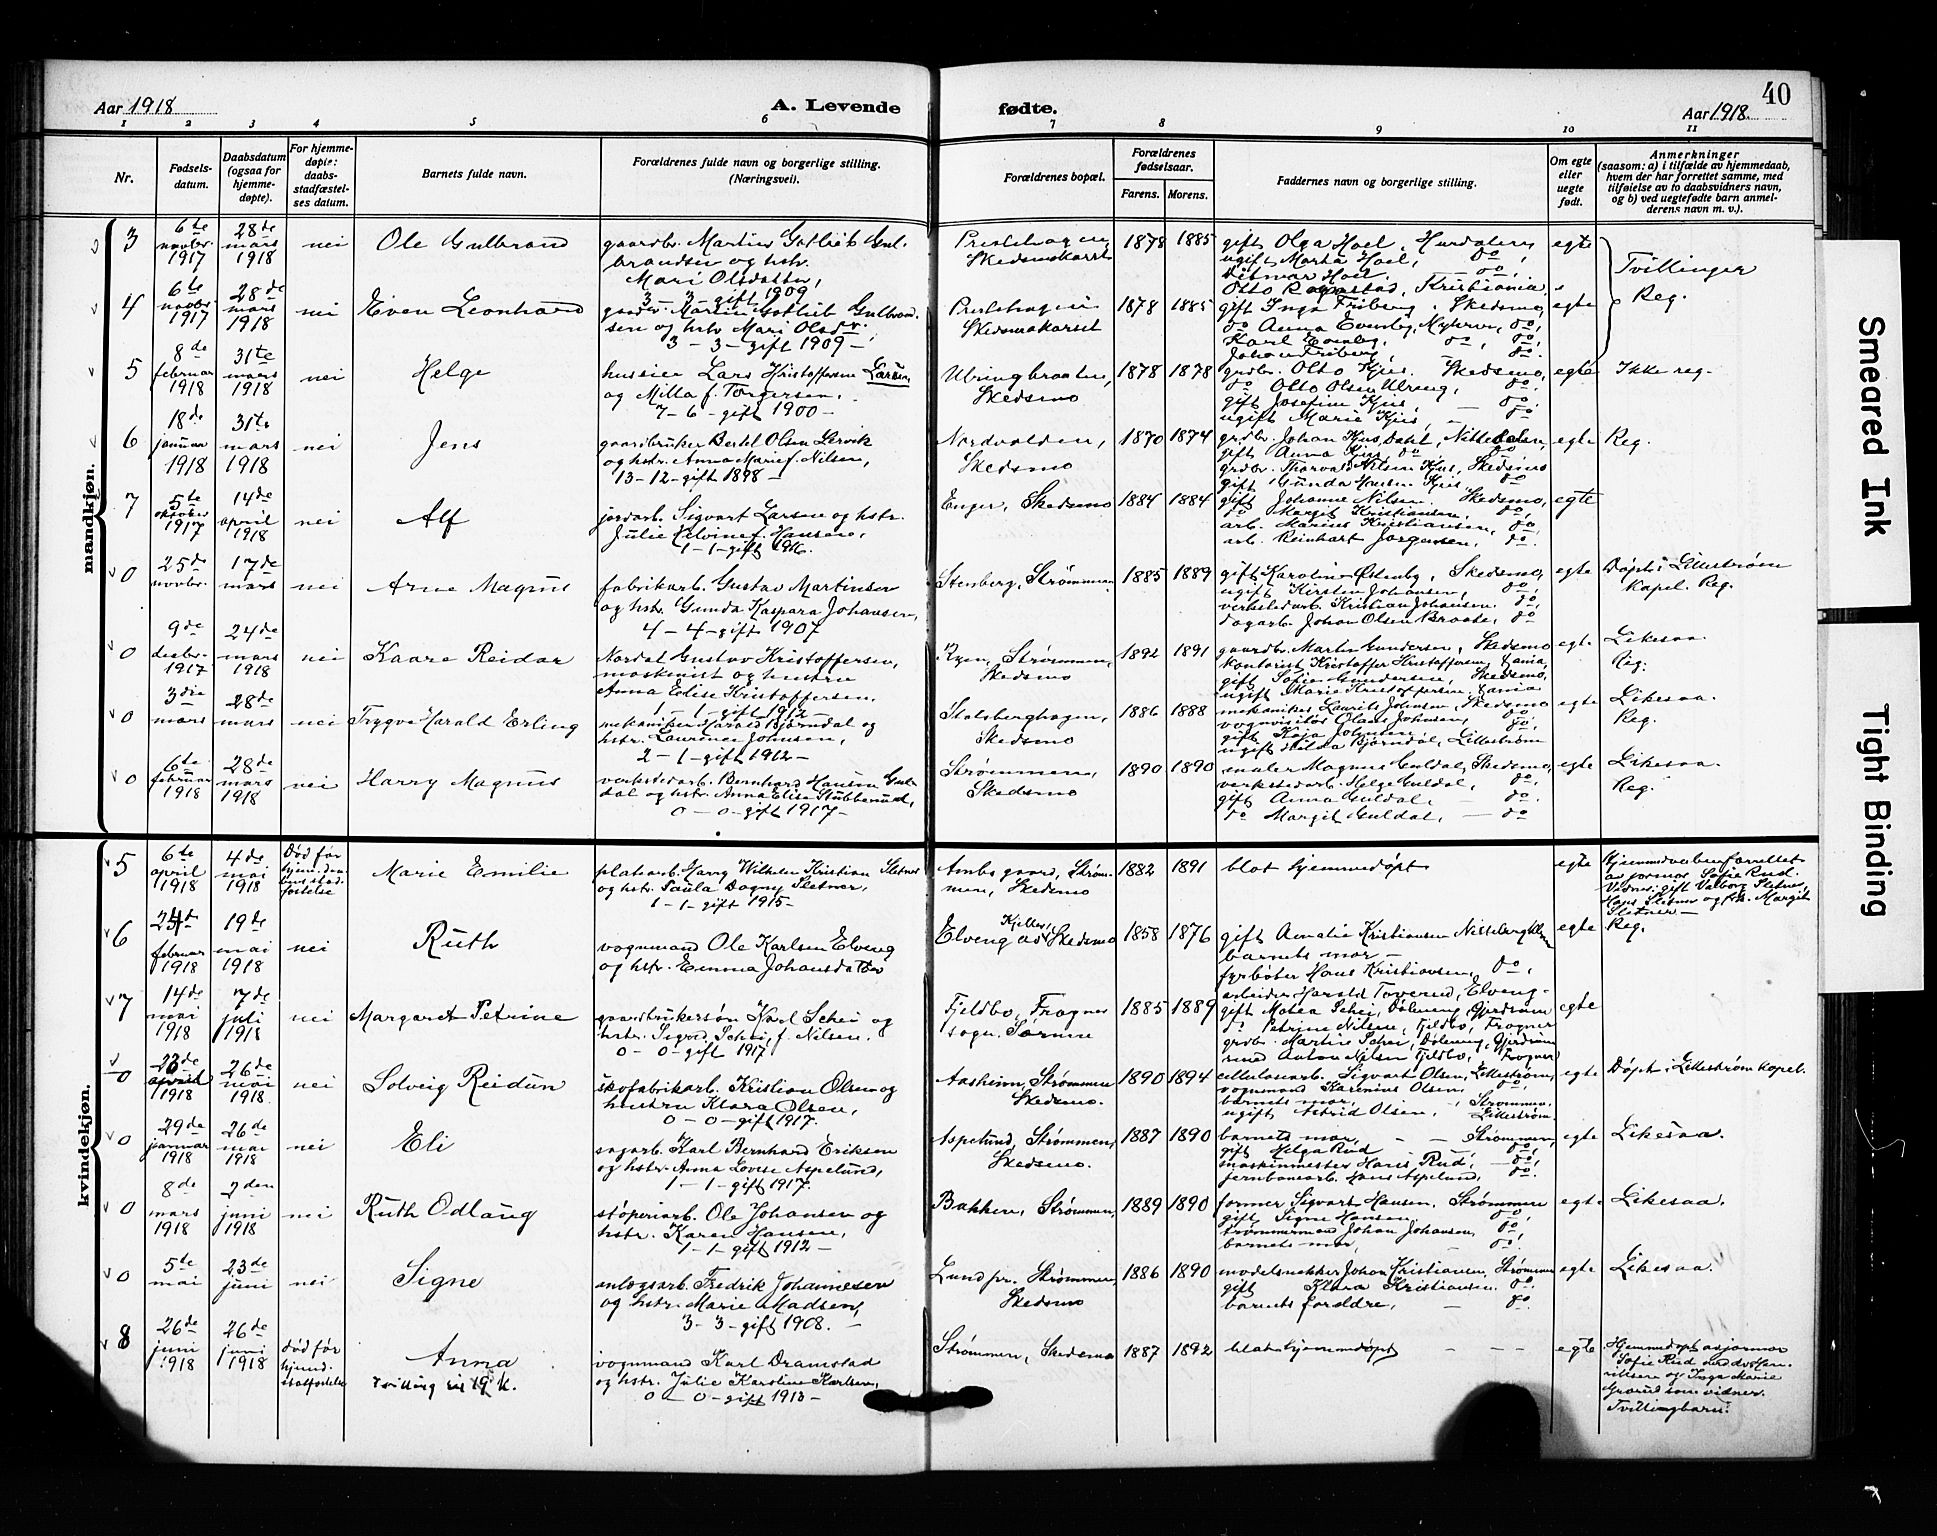 Aar 1918
A. Levende
fødte.
40
Aar 1918.
1 2 3 4 5 6 7 8 9 10 11
Nr.
Fødselsdatum.
Daabsdatum (ogsaa for hjemmedøpte).
For hjemmedøpte: daabsstadfæstelses datum.
Barnets fulde navn.
Forældrenes fulde navn og borgerlige stilling. (Næringsvei).
Forældrenes bopæl.
Forældrenes fødselsaar.
Farens. Morens.
Faddernes navn og borgerlige stilling.
Om egte eller uegte født.
Anmerkninger
(saasom: a) i tilfælde av hjemmedaab, hvem der har forrettet samme, med tilføielse av to daabsvidners navn, og b) ved uegtefødte barn anmelderens navn m. v.).
mandkjøn.
3
6te novbr. 1917
28de mars 1918
nei
Ole Gulbrand
gaardbr. Martin Gotlieb Gulbrandsen og hstr.
Mari Olsdatter,
3 – 3 – gift 1909
Skedsmokorset
1878 1885
gift Olga Hoel, Hurdalen,
ugift Marta Hoel, do,
Ditmar Hoel, do,
Kristiania
egte
Tvillinger
Reg.
4
6te novbr. 1917
28de mars 1918
nei
Even Leonhard
Martin Gotlieb Gulbrandsen og hstr. Mari Olsdr.
3 – 3 – gift 1909 –
Skedsmokorset
1878 1885
gift Inga Friberg, Skedsmo,
do Anna Evenby, Myhrer, do,
Karl Evenby, do, do,
Johan Friberg, – do.
egte
5
8de februar 1918
31te mars 1918
nei
Helge
huseier Lars Kristoffersen Larsen,
og Milla f. Torgersen,
7 – 6 – gift 1900 –
Skedsmo
1878 1878
grdbr. Otto Kjus, Skedsmo,
do Otto Olsen Ulreng, do.
gift Josefine Kjus, – do
ugift Marie Kjus, – do
egte
Ikke reg.
6
18de januar 1918
31te mars 1918
nei
Jens
gaardbruker Bertel Olsen Lervik
og hstr. Anna Marie f. Nilsen,
13 – 12 – gift 1898 –
Nordvolden,
Skedsmo
1870 1874
grdbr. Johan Kjus, Nittedalen,
gift Anna Kjus, do do,
grdbr. Thorvald Nilsen Kjus, Skedsmo
gift Gunda Hansen Kjus do
egte
Reg.
7
5te oktober 1917
14de april 1918
nei
Alf
jordarb. Sigvart Larsen og hstr.
Julie Elvine f. Hansen,
1 – 1 – gift 1916.
Enger, Skedsmo
1884 1884
gift Johanne Nilsen, Skedsmo,
do Margit Kristiansen, do,
arb. Marius Kristiansen, do,
arb. Reinhart Jørgensen, do.
egte
0
25de novbr.
17de mars
nei
Arne Magnus
fabrikarb. Gustav Martinsen
og hstr. Gunda Kaspara Johansen,
4 – 4 – gift 1907
Stenberg, Strømmen
1885 1889
gift Karoline Østenby, Skedsmo,
ugift Kirsten Johansen, do,
verkstedarb. Kristian Johansen, do,
dagarb. Johan Olsen Braate, do
egte
Døpt i Lillestrøm
Kapel. Reg.
0
9de desbr. 1917
24de mars 1918
nei
Kaare Reidar
Nordal Gustav Kristoffersen,
maskinist og hustru
Anna Elise Kristoffersen,
1 – 1 – gift 1912 –
Ryen, Strømmen,
Skedsmo
1892 1891
gaardbr. Martin Gundersen, Skedsmo
kontorist Kristoffer Kristoffersen, Xania,
gift Sofie Gundersen, Skedsmo,
ugift Marie Kristoffersen, Xania
egte
Likesaa.
Reg.
0
3die mars
28de mars
nei
Trygve Harald Erling
mekaniker Harald Bjørndal og
hstr. Laurence Johnsen,
2 – 1 – gift 1912 –
Stalsberghagen,
Skedsmo
1886 1888
mekaniker Laurits Johnsen, Skedsmo
vognvisitør Olaus Johnsen, do,
gift Kaja Johnsen do,
ugift Hilda Bjørndal, Lillestrøm
egte
Likesaa.
Reg.
0
6te februar 1918
28de mars 1918
nei
Harry Magnus
verkstedarb. Bernhard Hansen Guldal og hstr. Anna Elise Stubberud,
0 – 0 – gift 1917 –
Strømmen,
Skedsmo
1890 1890
maler Magnus Guldal, Skedsmo,
verkstedarb. Helge Guldal, do,
gift Anna Guldal, – do
do Margit Guldal, – do
egte
Likesaa.
Reg.
kvindekjøn.
5
6te april 1918
4de mai 1918
Død før
Marie Emilie
platearb. Harry Wilhelm Kristian Sletner
og hstr. Paula Dagny Sletner,
1 – 1 – gift 1915 –
Skedsmo
1882 1891
blot hjemmedøpt
egte
Hjemmedaaben forrettet
av jormor Sofie Rud.
Vidner: gift Valborg Sletner,
Hans Sletner og frk. Margit
Sletner –
6
24de februar 1918
19de mai 1918
nei
Ruth
vognmand Ole Karlsen Elveng
og hstr. Emma Johansdatter
Elveng av Kjeller, Skedsmo
1858 1876
gift Amalie Kristiansen
barnets mor –
fyrbøter Hans Kristiansen, do,
arbeider Harald Toverud, Elveng –
egte
Reg.
7
14de mai 1918
7de juli 1918
nei
Margaret Petrine
gaardbrukersøn Karl Schei og
hstr. Sigrid Schei, f. Nilsen,
0 – 0 – gift 1917
Fjeldbo, Frogner
sogn, Sørum
1885 1889
gift Matea Schei, Døleneng, Gjerdrum
do Petrine Nilsen, Fjeldbo, Frogner
grdbr. Martin Schei, Døleneng, Gjerdrum
Anton Nilsen Fjeldbo, Frogner
egte
0
23de april 1918
26de mai 1918
nei
Solveig Reidun
skofabrikarb. Kristian Olsen og
hustru Klara Olsen,
0 – 0 – gift 1917.
Aasheim, Strømmen
Skedsmo.
1890 1894
cellulosearb. Sigvart Olsen, Lillestrøm,
vognmand Karenius Olsen, do,
barnets mor, Strømmen,
ugift Astrid Olsen, Lillestrøm.
egte
Døpt i Lillestrøm Kapel.
0
29de januar 1918
26de mai 1918
nei
Eli
sagarb. Karl Bernhard Eriksen
og hstr. Anna Lovise Aspelund,
1 – 1 – gift 1917.
Aspelund, Strømmen,
Skedsmo.
1887 1890
barnets mor, – – Strømmen,
gift Helga Rud do,
maskinmester Hans Rud, – do,
jernbanearb. Hans Aspelund, do
egte
Likesaa.
0
8de mars 1918
2den juni 1918
nei
Ruth Odlaug
støperiarb. Ole Johansen og
hstr. Karen Hansen,
1 – 1 – gift 1912 –
Bakken, Strømmen,
1889 1890
former Sigvart Hansen, Strømmen
gift Signe Hansen do,
tømmermand Johan Johansen, do,
barnets mor, – do.
egte
Likesaa.
0
5te mai
23de juni
nei
Signe
anlegsarb. Fredrik Johannesen
og hstr. Marie Madsen,
3 – 3 – gift 1908. –
Lund pr. Strømmen,
Skedsmo
1886 1890
modelsnekker Johan Kristiansen, Strømmen
gift Klara Kristiansen do.
barnets forældre, – do.
egte
Likesaa.
8
26de juni 1918
26de juni 1918
død før
Anna
Tvilling til 19 k.
vognmand Karl Dramstad
og hstr. Julie Karoline Karlsen,
0 – 0 – gift 1913 –
Strømmen, Skedsmo
1887 1892
blot hjemmedøpt – – – –
egte
Hjemmedøpt av jormor
Sofie Rud
og Inga Marie
som vidner.
Tvillingbarn.
Smeared Ink
Tight Binding